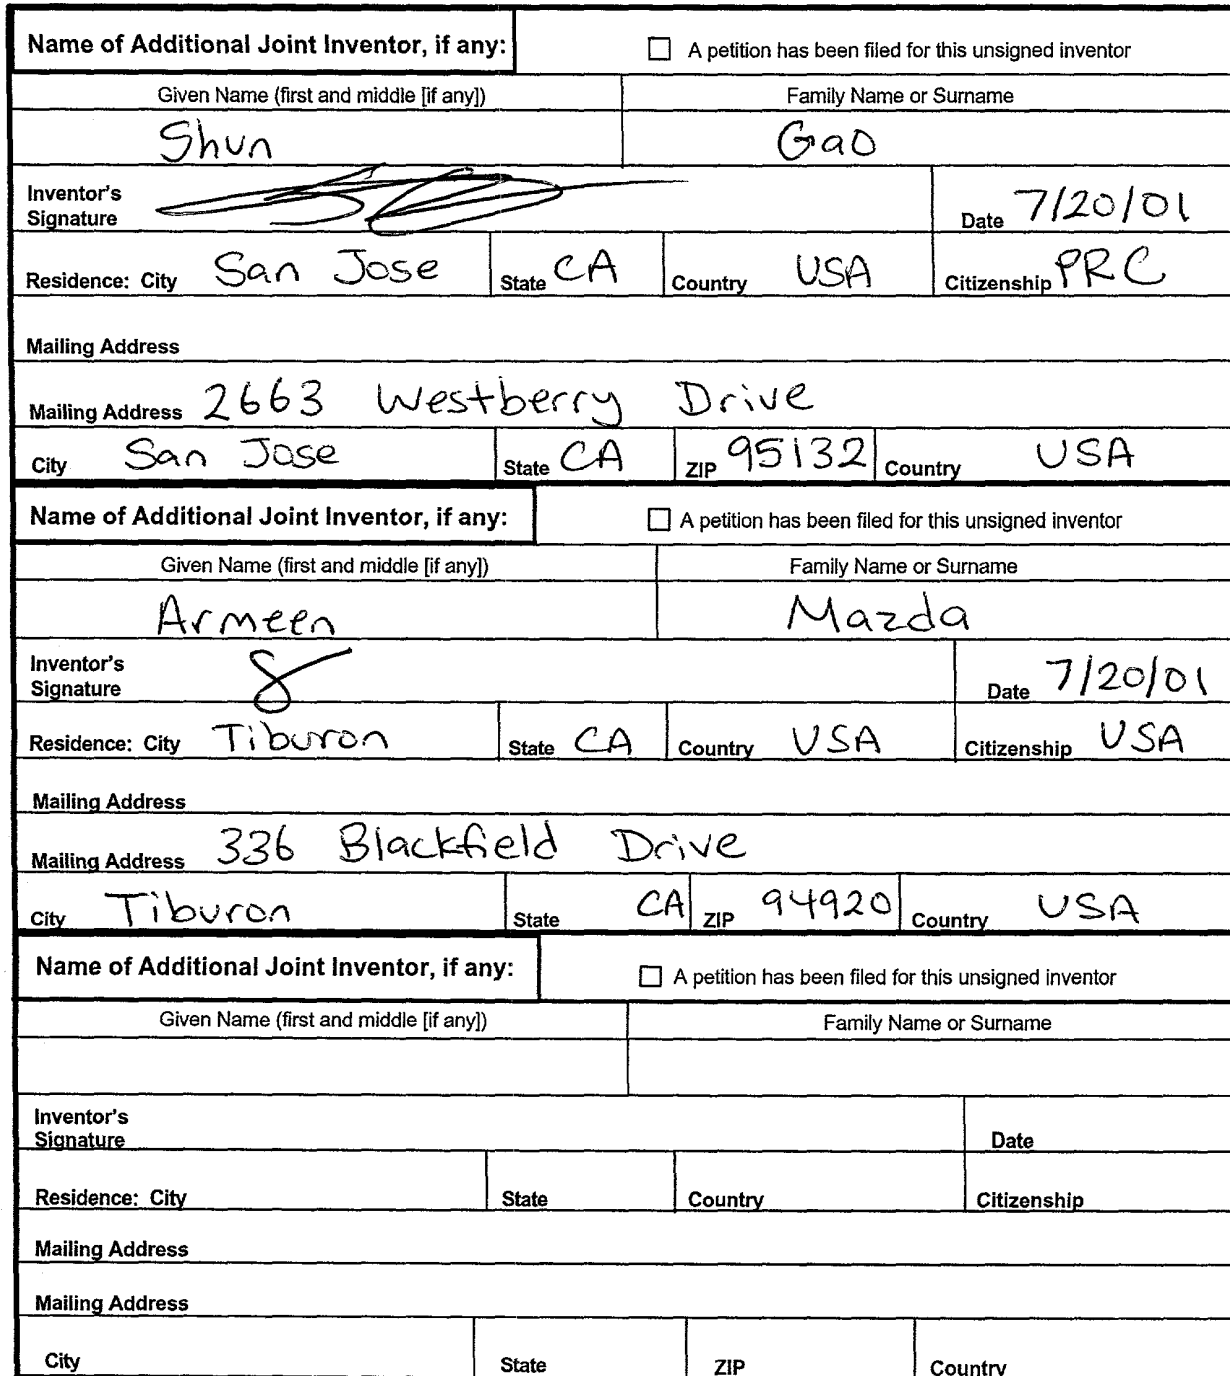 Name of Additional Joint Inventor, if any: A petition has been filed for this unsigned inventor
Given Name (first and middle [if any]) Family Name or Surname
Shun Gao
Inventor's
Signature Date 7/20/01
Residence: City San Jose State CA Country USA Citizenship PRC
Mailing Address
Mailing Address 2663 Westberry Drive
City San Jose State CA ZIP 95132 Country USA
Name of Additional Joint Inventor, if any: A petition has been filed for this unsigned inventor
Given Name (first and middle [if any]) Family Name or Surname
Armeen Mazda
Inventor's
Signature Date 7/20/01
Residence: City Tiburon State CA Country USA Citizenship USA
Mailing Address
Mailing Address 336 Blackfield Drive
City Tiburon State CA ZIP 94920 Country USA
Name of Additional Joint Inventor, if any: A petition has been filed for this unsigned inventor
Given Name (first and middle [if any]) Family Name or Surname
Inventor's
Signature Date
Residence: City State Country Citizenship
Mailing Address
Mailing Address
City State ZIP Country